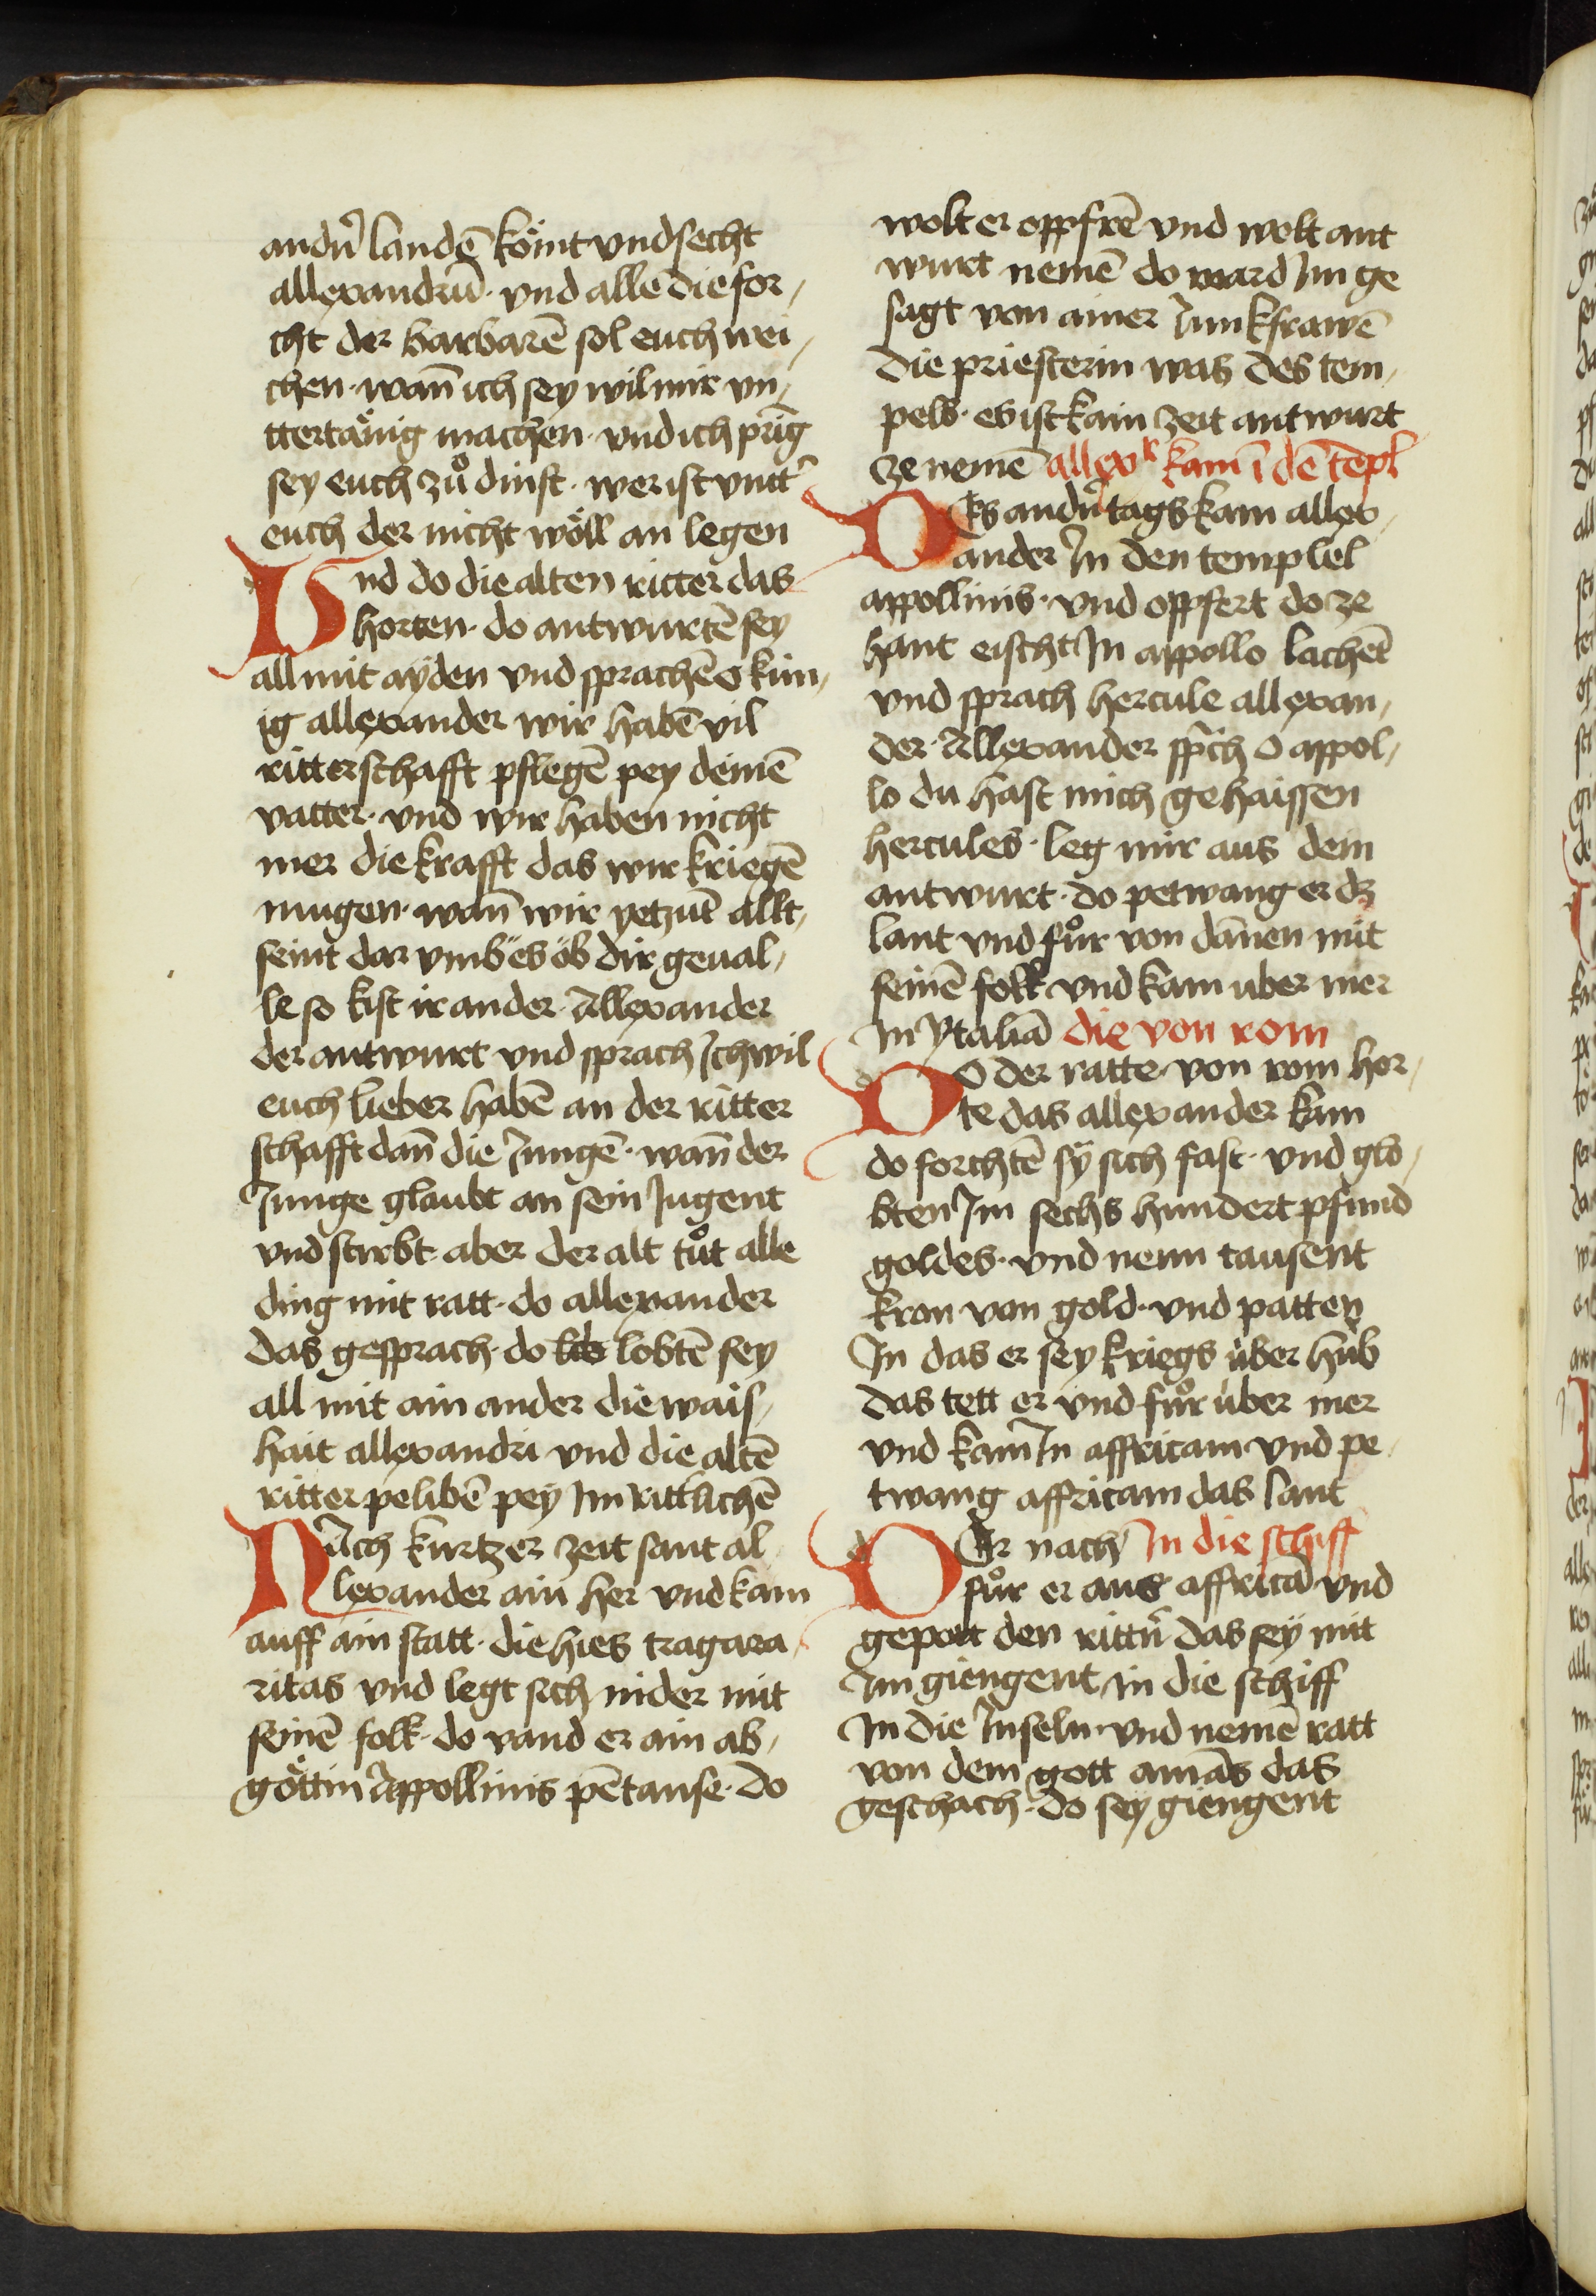 andn̄ landē kömt vnd secht
allexandrū · vnd alle die for,
cht der barbarē sol euch wei,
chen · wañ ich sey wil mir vn,
ttertäṅig machen · vnd ich prīg
sey euch zů dinst · wer ist vntt̄
euch der nicht wöll an legen
Vnd do die alten ritter das
horten · do antwurtē sey
all mit ayden vnd sprachē o kün,
ig allexander wir habē vil
ritterschafft pflegē pey deinē
vatter · vnd wir haben nicht
mer die krafft das wir kriegē
mugen · wañ wir yetzūt allt,
seint dar vmb es ob dir geual,
le so kist ir ander · Allexander
der antwurt vnd sprach Ich wil
euch lieber habē an der ritter
schafft dañ die Jungē · wañ der
Junge glaubt an sein Jugent
vnd stirbt · aber der alt tůt alle
ding mit ratt · do allexander
das gesprach · do lib lobtē sey
all mit ain ander die wais,
hait allexandri vnd die altē
ritter pelibē pey Im rittlichē
NAch kurtzer zeit sant al,
lexander ain her vnd kam
auff ain statt · die hies tragara,
ritas vnd legt sich nider mit
seinē folk · do vand er ain ab,
göttin Appollinis pētause · do
wolt er oppfrē vnd wolt ant
wurt nemē do ward Im ge
sagt von ainer Junkfrawē
die priesterin was des tem,
pels · es ist kain zeit antwurt
ze nemē allexr kam ī dē tēpl
Des andn̄ tags kam allex,
ander In den templel
appollinis · vnd oppfert do ze
hant eischt In appollo lachēt
vnd sprach hercule allexan,
der · Allexander sp̄ch o appol,
lo du hast mich gehaissen
hercules · leg mir aus dem
antwurt · do petwang er dz
lant vnd fůr von dāmen mit
seinē folk vnd kam uber mer
In ytaliā die von rom
DO der ratte · von rom hor,
te das allexander kam
do forchtē sy sich fast · vnd glo,
bten Im sechs hundert pfund
goldes · vnd neun tausent
kron von gold · vnd patten
In das er sey kriegs über hüb
das tett er vnd fůr über mer
vnd kam In affricam vnd pe,
twang affricam das lant
DAr nach In die schiff
fůr er aus affricā vnd
gepott den rittn̄ das sey mit
Im giengent In die schiff
In die Inseln · vnd nemē ratt
von dem gott amās das
geschach · do sey giengent